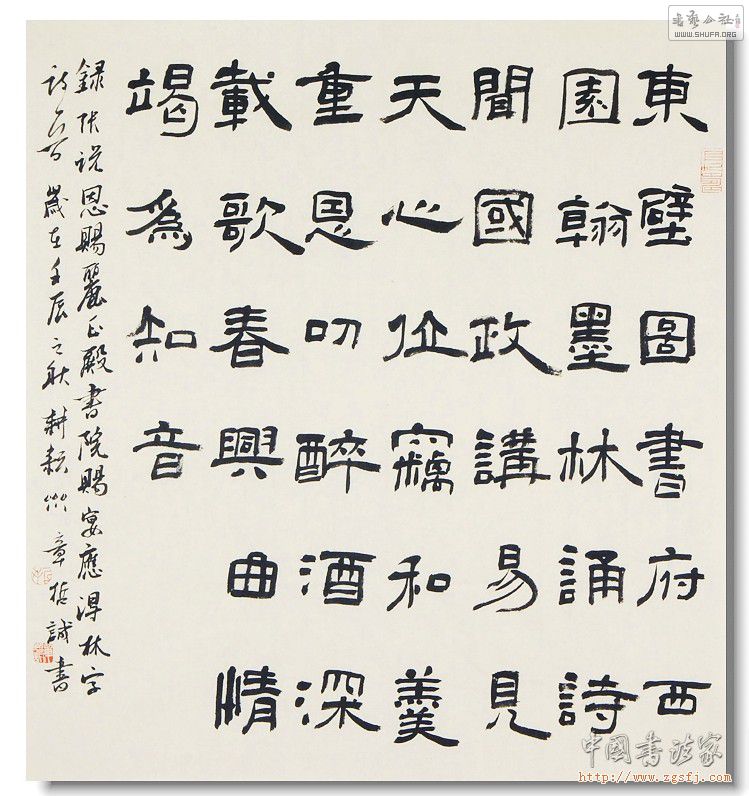 東壁圖書府西
園翰墨林誦詩
聞國政講易見
天心位竊和羹
重恩叨醉酒深
載歌春興曲情
竭爲知音
録張説恩賜麗正殿書院賜宴應得林字
詩一首 歲在壬辰之秋耕耘 章哲誠書
書藝公社
WWW.SHUFA.ORG
中國書法家
http://www.zgsfj.com